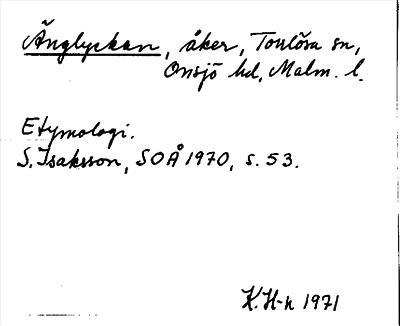 Änglyckan, åker, Torrlösa sn,
Onsjö hd, Malm. l.
Etymologi.
S. Isaksson, SOÅ 1970, s. 53.
K.H-n 1971